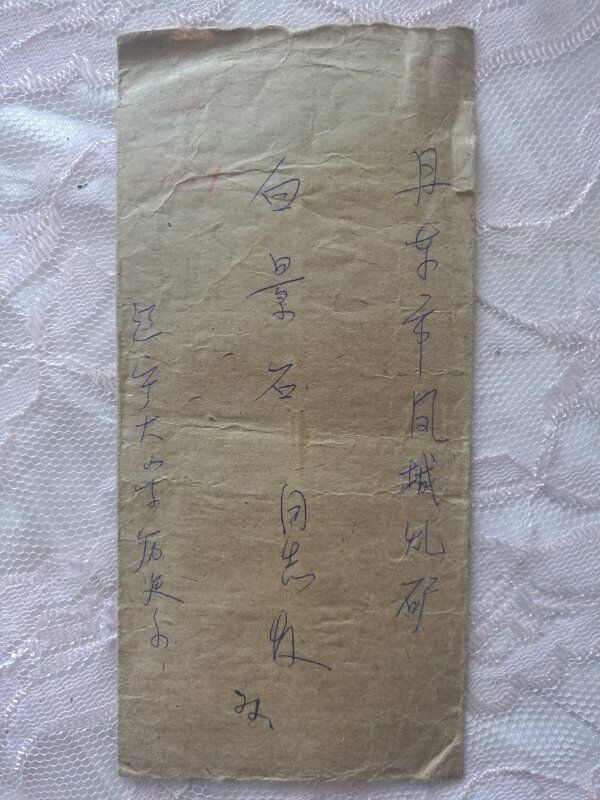 丹东市凤城矿
白景石 同志收
辽宁大学历史系